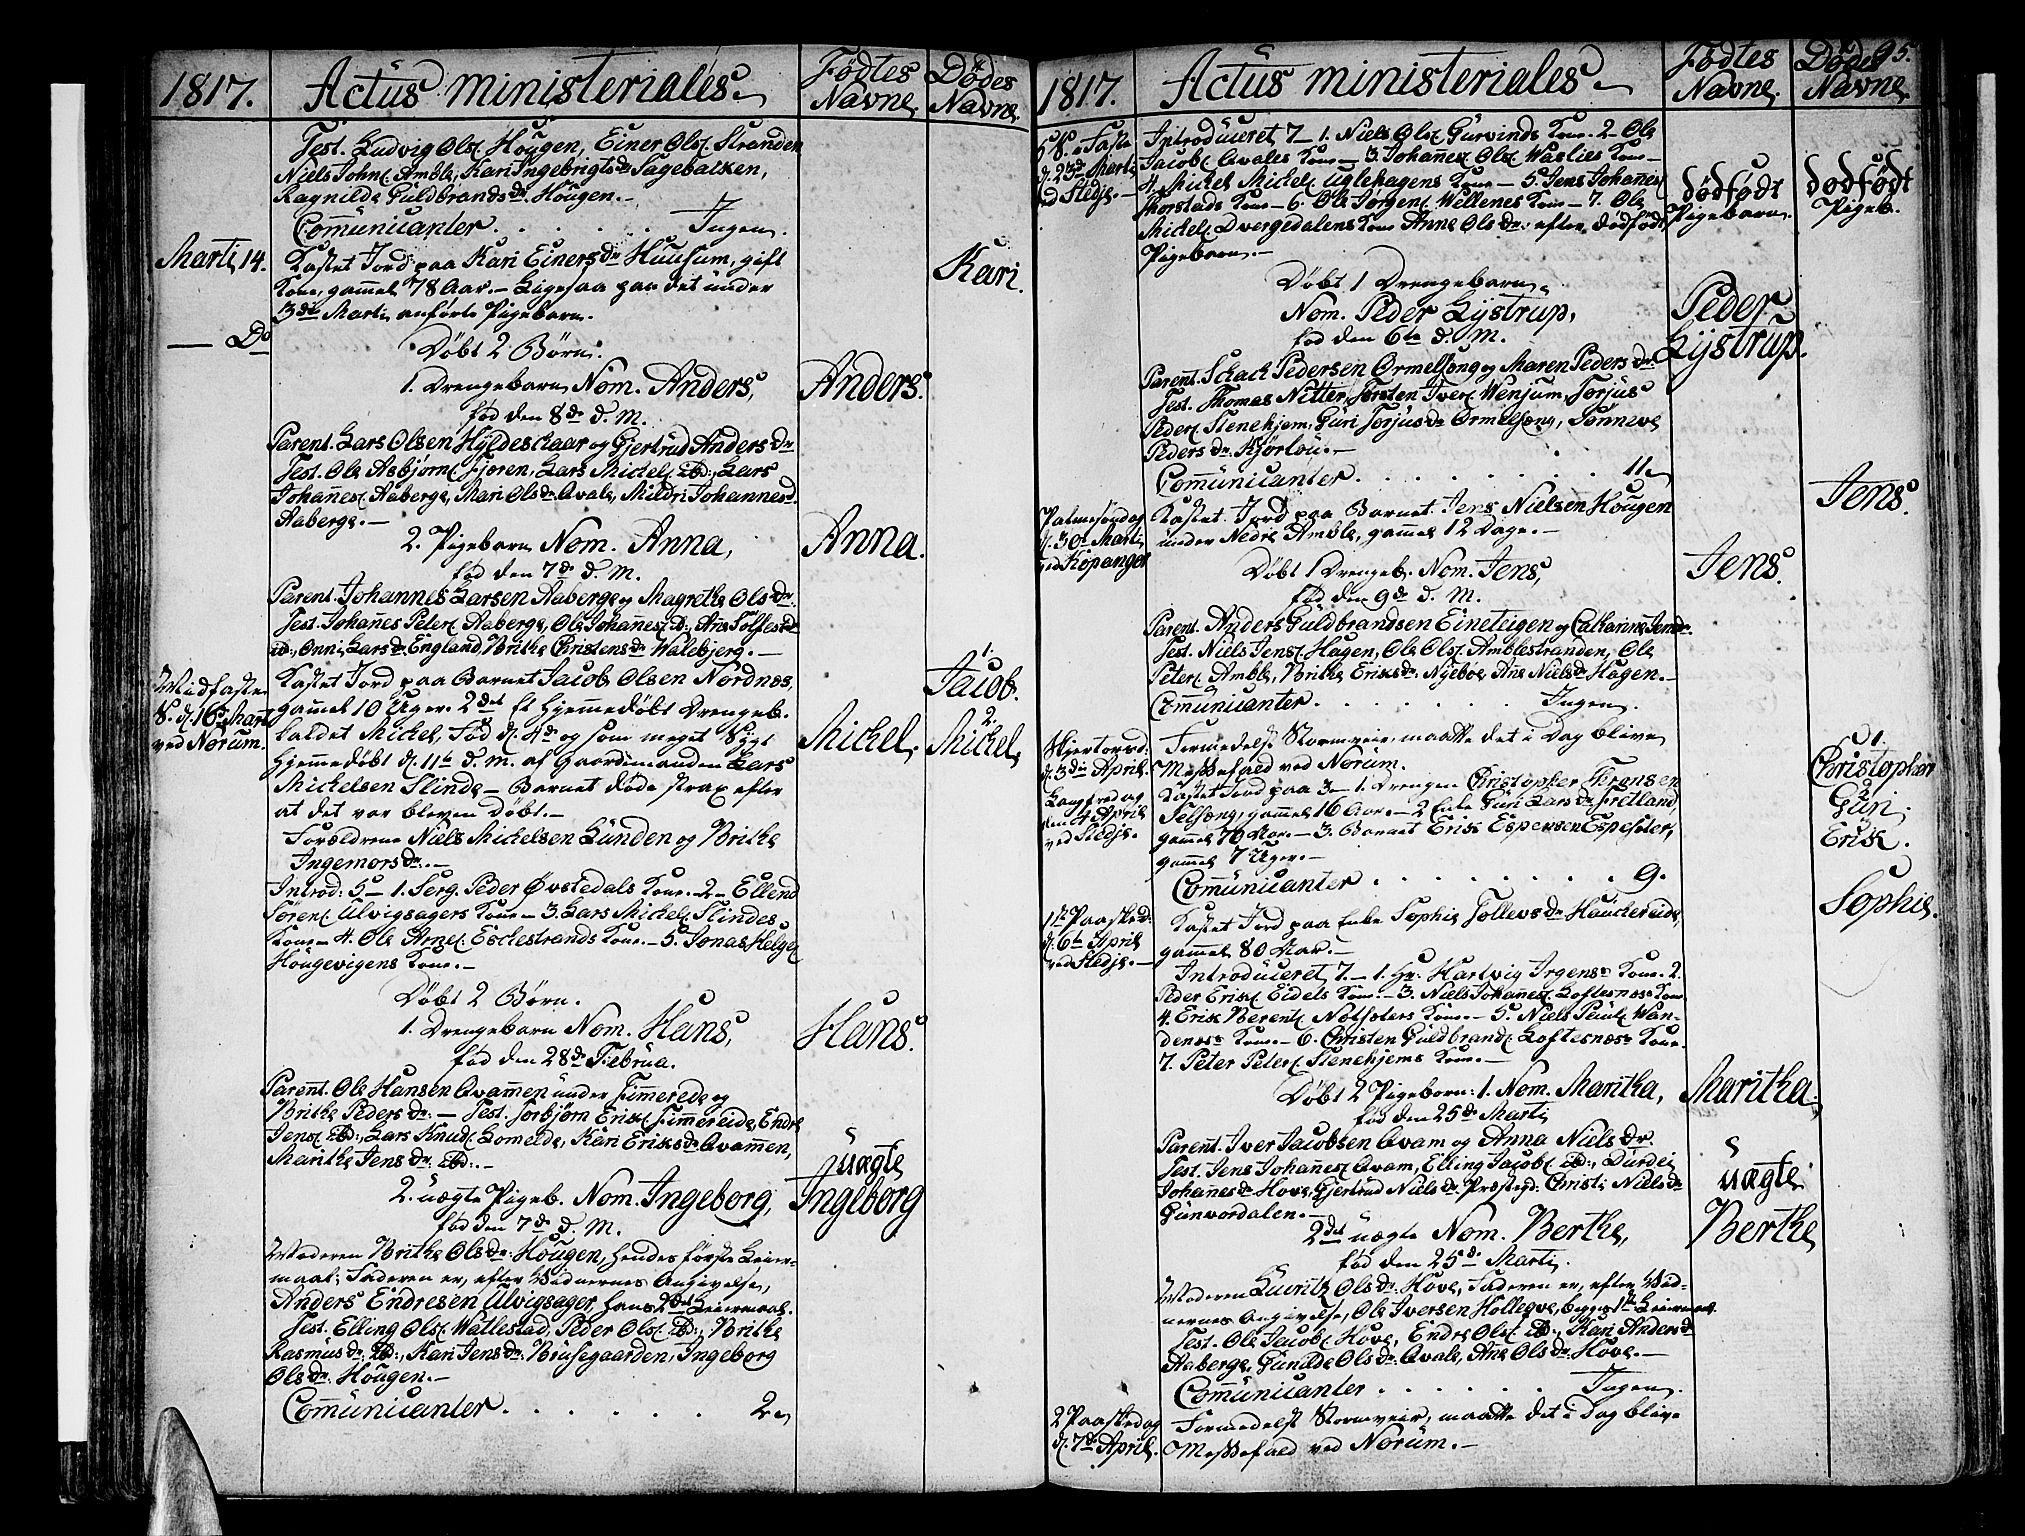 1817. Actus ministeriales. Fødtes Navne. Dødes Navne.
Test. Ludvig Ols. Hougen, Einer Ols. Stranden
Niels Johns. Amble, Kari Ingebrigtsdr. Sagebakken,
Ragnilde Guldbrandsdr. Hougen.
Com̅unicanter . . . . . . Ingen.
Marti 14. Kastet Jord paa Kari Einersdr. Huusum, gift Kari.
Kone, gammel 78 Aar. — Ligesaa paa det under
3die Martii anførte Pigebarn.
— Do
Døbt 2 Børn.
1. Drengebarn Nom. Anders, Anders.
fød den 8de d. M.
Parent. Lars Olsen Hyldeskaar og Gjertrud Andersdr.
Test. Ole Asbjørns. Fjøren, Lars Michels. ibd:, Lars
Johan̅es. Aaberge, Mari Olsdr. Qvale, Mildri Johannesd.
Aaberge. —
2. Pigebarn Nom. Anna, Anna.
fød den 7de d. M.
Parent. Johannes Larsen Aaberge og Magrethe Olsdr.
Test. Johan̅es Peters. Aaberge, Ole Johan̅es. ibd:, Ane Tollefsdr.
ibd:, Onni Larsdr. England, Brithe Christensdr. Walebjerg. —
Midfaste
S. d. 16de Marti
ved Norum.
Kastet Jord paa Barnet Jacob Olsen Nordnæs, 1. Jacob.
gam̅el 10 Uger. 2det et hjemmedøbt Drengeb.
kaldet Michel, fød d. 4de og som meget svagt Michel. 2. Michel,
hjemmedøbt d. 11te d. M. af Gaardmanden Lars
Michelsen Slinde — Barnet døde strax efter
at det var bleven døbt. —
Forældrene Niels Michelsen Lunden og Brithe
Ingemorsdr. —
Introd: 5 — 1. Serg. Peder Øvstedals Kone — 2 — Ellend
Sørens. Ulvigsagers Kone — 3. Lars Michels. Slindes
Kone — 4. Ole Arnes. Eschestrands Kone. — 5. Jonas Helges.
Hougevigens Kone. —
Døbt 2 Børn.
1. Drengebarn Nom. Hans, Hans.
fød den 28de Februa.
Parent. Ole Hansen Qvam̅en under Fim̅ereide og
Brithe Pedersdr. — Test. Torbjørn Eriks. Fim̅ereide, Endre
Jens. ibd:, Lars Knuds. Lomelde, Kari Eriksdr. Qvam̅en,
Marithe Jensdr. ibd:. —
2. uægte Pigeb. Nom. Ingeborg, uægte Ingeborg
fød den 7de d. M.
Moderen Brithe Olsdr. Hougen, hendes første Leier-
maal; Faderen er, efter Vidnernes Angivelse,
Anders Endresen Ulvigsager, hans 2det Leiermaal.
Test. Elling Ols. Watlestad, Peder Ols. ibd:, Brithe
Rasmusdr. ibd:, Kari Jensdr. Brusegaarden, Ingeborg
Olsdr. Hougen. —
Com̅unicanter . . . . . . 2.
95.
1817. Actus ministeriales. Fødtes Navne. Dødes Navne.
5 S. i Faste
d. 23de Marti
ved Stedje. —
Introduceret 7 — 1. Niels Ols. Gurvinds Kone. 2 — Ole
Jacobs. Qvales Kone — 3. Johan̅es Ols. Waslies Kone —
4. Michel Michels. Uglehagens Kone — 5. Jens Johan̅es. dødfødt Pigebarn. dødfødt Pigeb.
Skorstads Kone — 6. Ole Jørgens. Wellenes Kone — 7. Ole
Michels. Dvergedalens Kone Anne Olsdr. efter dødfødt
Pigebarn. —
Døbt 1 Drengebarn.
Nom. Peder Lystrup, Peder Lystrup.
fød den 6te d. M.
Parent. Schack Pedersen Ormelsong og Maren Pedersdr.
Test. Thomas Nitter, Torsten Ivers. Wenjum, Torjus
Peders. Stenehjem, Guri Torjusdr. Ormelsong, Sønneve
Pedersdr. Kjørlou. —
Com̅unicanter . . . . . . 11
Palmesøndag
d. 30te Marti
ved Kopanger
Kastet Jord paa Barnet Jens Nielsen Hougen Jens.
under Nedre Amble, gam̅el 12 Dage. —
Døbt 1 Drengeb. Nom. Jens, Jens.
fød den 9de d. M.
Parent. Anders Guldbrandsen Eineteigen og Catharine Jensdr.
Test. Niels Jens. Hagen, Ole Ols. Amblestranden, Ole
Peters. Amble, Brithe Eriksdr. Nybøe, Ane Nielsd. Hagen. —
Com̅unicanter . . . . . . Ingen.
Skjertorsd:
d. 3die April.
Formedelst Stormveir, maatte det i Dag blive
Messefald ved Norum.
Langfredag
den 4 April
ved Stedje.
Kastet Jord paa 3 — 1. Drengen Christopher Thrensen 1. Christopher
Selseng, gammel 16 Aar. — 2 Enke Guri Larsdr. Fretland, 2 Guri,
gammel 70 Aar. — 3. Barnet Erik Espensen Espeseter, 3 Erik.
gammel 7 Uger. —
Com̅unicanter . . . . . . 9.
1ste Paasked:
d. 6te April
ved Stedje. —
Kastet Jord paa Enke Sophie Tollevsdr. Haukereide, Sophie.
gammel 80 Aar. —
Introduceret 7. — 1. Hr. Hartvig Irgens Kone. 2.
Peder Eriks. Eidels Kone. — 3. Niels Johan̅es. Loftesnæs Kone
4. Erik Berents. Notseters Kone. — 5. Niels Pouls. Wan-
denæs Kone — 6. Christen Guldbrands. Loftesnæs Kone.
7. Peter Peters. Stenehjems Kone. —
Døbt 2 Pigebørn: 1. Nom. Maritha, Maritha.
fød den 25de Marti
Parent. Iver Jacobsen Qvam og Anna Nielsdr.
Test. Jens Johan̅es. Qvam, Elling Jacobs. ibd:, Durdei
Johan̅esdr. Hove, Gjertrud Nielsdr. Præstegd. Christi Nielsdr.
Gunvordalen. —
2det uægte Nom. Berthe, uægte Berthe
fød den 25de Marti.
Moderen Lucritz Olsdr. Hove, Faderen er, efter Vid-
nernes Angivelse, Ole Iversen Hollegve, begges 1ste Leiermaal.
Test. Ole Jacobs. Hove, Endre Ols. ibd:, Kari Andersdr.
Aaberge, Gunilde Olsdr. Qvale, Ane Olsdr. Hove. —
Com̅unicanter . . . . . . Ingen.
2 Paaskedag
d. 7de April.
Formedelst Stormveir, maatte det i Dag blive
Messefald ved Norum. —